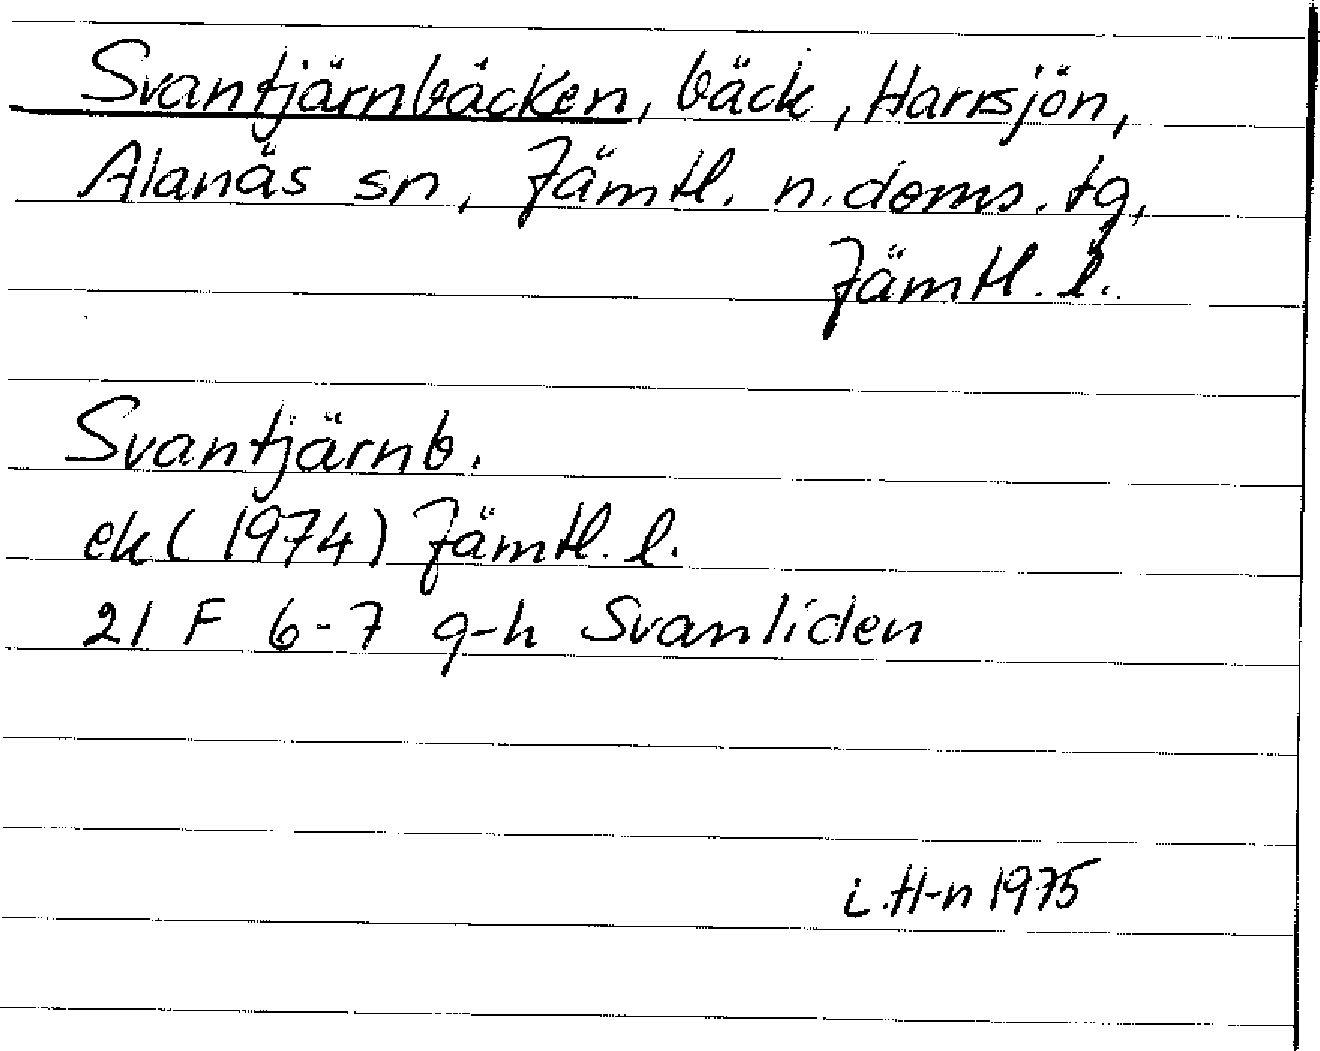 Svantjärnbäcken, bäck, Harrsjön,
Alanäs sn, Jämtl. n. doms. tg,
Jämtl. l.
Svantjärnb.
ek (1974) Jämtl. l.
21 F 6-7 g-h Svanliden
i. H-n 1975